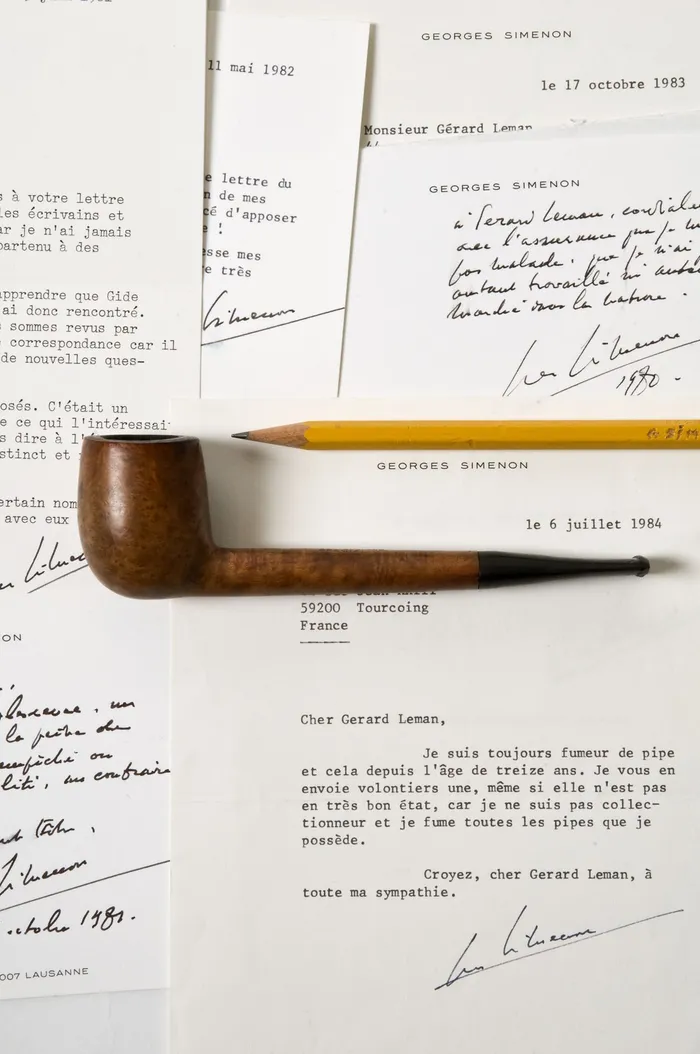 11 mai 1982
e lettre du
n de mes
cé d'apposer
e !
esse mes
e très
GEORGES SIMENON
le 17 octobre 1983
Monsieur Gérard Leman
GEORGES SIMENON
à Gerard Leman, cordiale
avec l'assurance que je
pas malade, que je n'ai
autant travaillé ni autant
marché dans la nature.
1980.
s à votre lettre
les écrivains et
ar je n'ai jamais
partenu à des
apprendre que Gide
ai donc rencontré.
s sommes revus par
e correspondance car il
de nouvelles ques-
osés. C'était un
e ce qui l'intéressai
s dire à l'
stinct et
ertain nom
avec eux
ON
la pêche
au contraire
octobre 1981.
007 LAUSANNE
GEORGES SIMENON
le 6 juillet 1984
59200 Tourcoing
France
Cher Gerard Leman,
Je suis toujours fumeur de pipe
et cela depuis l'âge de treize ans. Je vous en
envoie volontiers une, même si elle n'est pas
en très bon état, car je ne suis pas collec-
tionneur et je fume toutes les pipes que je
possède.
Croyez, cher Gerard Leman, à
toute ma sympathie.